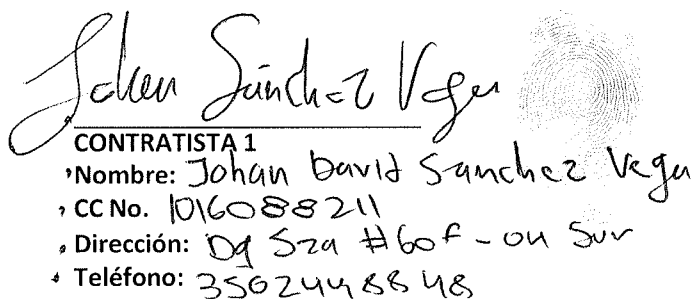 Johan Sánchez Vega
CONTRATISTA 1
Nombre: Johan David Sanchez Vega
CC No. 1016088211
Dirección: Dg 52a #60f - 04 Sur
Teléfono: 3502448848